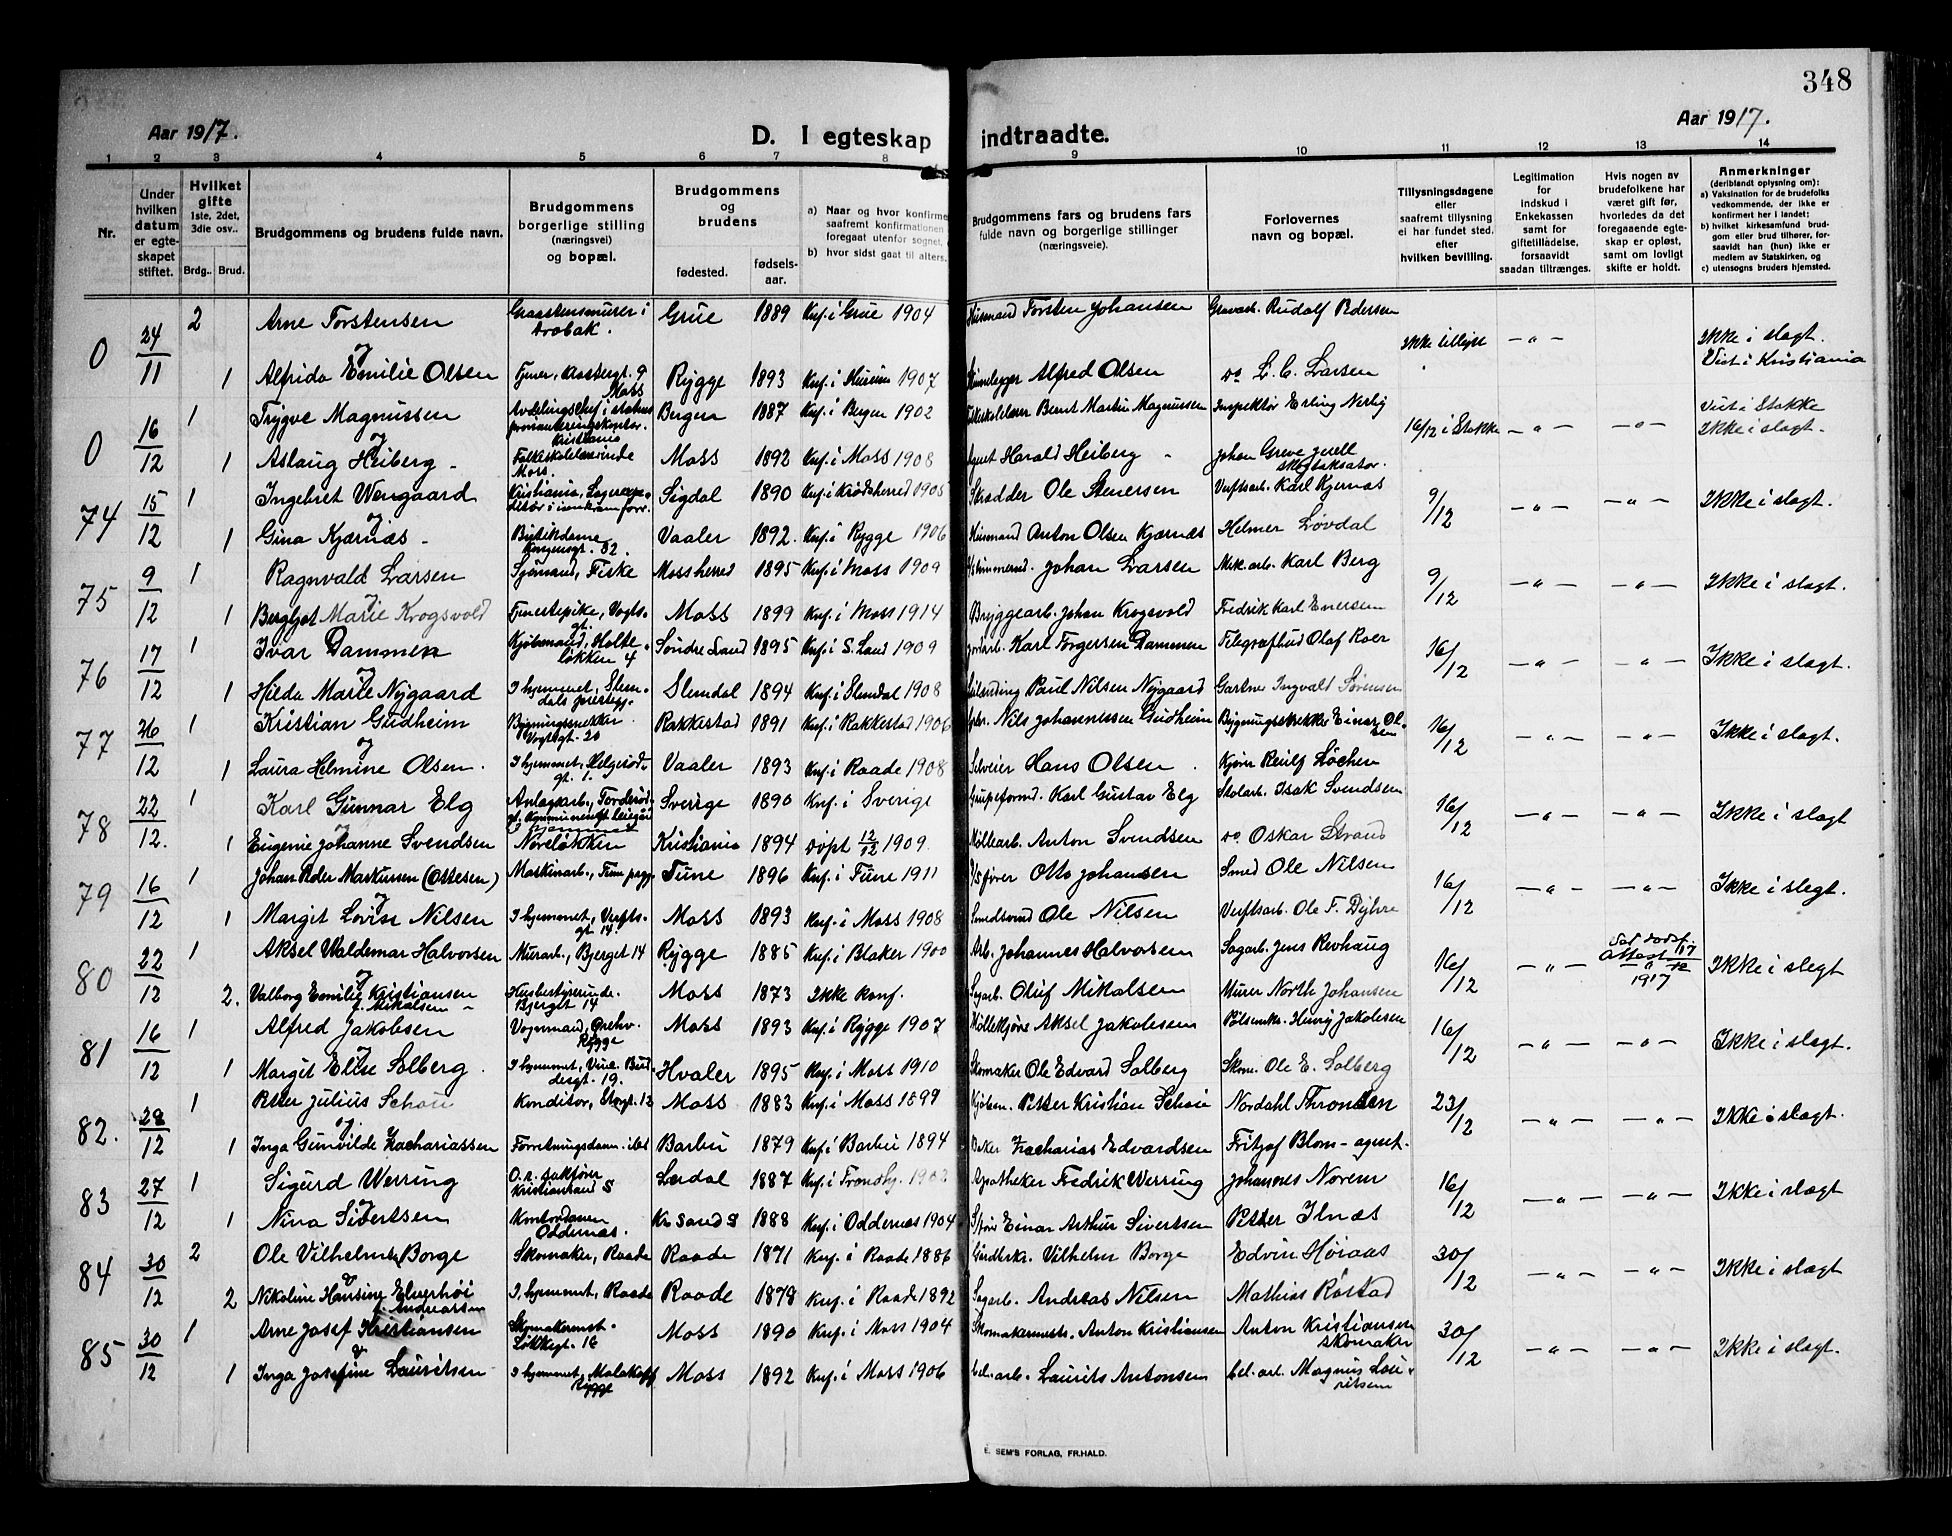 348
Aar 1917.
D. I egteskap indtraadte.
Aar 1917.
1 2 3 4 5 6 7 8 9 10 11 12 13 14
Nr.
Under hvilken datum er egteskapet stiftet.
Hvilket gifte 1ste, 2det, 3die osv..
Brdg.. Brud.
Brudgommens og brudens fulde navn.
Brudgommens borgerlige stilling (næringsvei) og bopæl.
Brudgommens og brudens
fødested. fødselsaar.
a) Naar og hvor konfirme
saafremt konfirmationen
foregaat utenfor sognet,
b) hvor sidst gaat til alters.
Brudgommens fars og brudens fars fulde navn og borgerlige stillinger (næringsveie).
Forlovernes navn og bopæl.
Tillysningsdagene eller saafremt tillysning ei har fundet sted. efter hvilken bevilling.
Legitimation for indskud i Enkekassen samt for giftetilladelse, forsaavidt saadan tiltrænges.
Hvis nogen av brudefolkene har været gift før, hvorledes da det foregaaende egteskap er opløst, samt om lovligt skifte er holdt.
Anmerkninger (deriblandt oplysning om): a) Vaksination for de brudefolks vedkommende, der ikke er konfirmert her i landet; b) hvilket kirkesamfund brudgom eller brud tilhører, forsaavidt han (hun) ikke er medlem av Statskirken; c) utensogns bruders hjemsted.
0 24/11 2 Arne Torstensen Graastensmurer i Drøbak. Grue 1889 Knf. i Grue 1904 Husmand Torsten Johansen Gravarb. Rudolf Pedersen Ikke tillyst — " — Ikke i slægt. Viet i Kristiania
og
1 Alfrida Emilie Olsen Tjener, Moss Rygge 1893 1907 Alfred Olsen do L. C. Larsen
0 16/12 1 Trygve Magnussen Kristiania Bergen 1887 Knf. i Bergen 1902 Bernt Martin Magnussen Inspektør Erling Nerby 16/12 i Stokke — " — — " — Viet i Stokke Ikke i slægt.
og
1 Aslaug Heiberg Folkeskolelærerinde Moss. Moss 1892 Knf. i Moss 1908 Agent Harald Heiberg Johan Greve
74 15/12 1 Ingebret Wengaard Kristiania, Sigdal 1890 Knf. i Krødsherred 1905 Skrædder Ole Stenersen Verftsarb. Karl Kjernæs 9/12 — " — — " — Ikke i slægt.
og
1 Gina Kjærnæs Butikdame Kongensgt. 32. Vaaler 1892. Knf. i Rygge 1906 Husmand Anton Olsen Kjærnæs Helmer Løvdal
75 9/12 1 Ragnvald Larsen Sjømand, Fiske Mossherred 1895 Knf. i Moss 1909 Johan Larsen Mek. arb. Karl Berg 9/12 — " — — " — Ikke i slægt.
og
1 Bergljot Marie Krogsvold Tjenestepike, Vogtsgt. Moss 1899 Knf. i Moss 1914 Bryggearb. Johan Krogsvold Fredrik Karl Enersen
76 17/12 1 Ivar Dammen Kjøbmand, Holteløkken 4 Søndre Land 1895 Knf. i S. Land 1909 Jordarb. Karl Torgersen Dammen Olaf Roer 16/12 — " — — " — Ikke i slægt.
og
1 Hilda Marie Nygaard I hjemmet, Slemdals prestegj. Slemdal 1894 Knf. i Slemdal 1908 Paul Nilsen Nygaard Gartner Ingvald Sørensen
77 26/12 1 Kristian Gudheim Bygningssnekker Vogtsgt. 20 Rakkestad 1891 Knf. i Rakkestad 1906 Nils Johannessen Gudheim Bygningssnekker Einar Olsen 16/12 — " — — " — Ikke i slægt.
og
1 Laura Helmine Olsen. I hjemmet, Helgerødgt. 1. Vaaler 1893 Knf. i Raade 1908 Selveier Hans Olsen Kjører Løchen
78 22/12. 1 Karl Gunnar Elg Anlægsarb., Sverige 1890 Knf. i Sverige Karl Gustav Elg Stolarb. Isak Svendsen 16/12 — " — — " — Ikke i slægt
og
1 Eugenie Johanne Svendsen Noreløkken Kristiania 1894 døpt 12/12 1909. Møllearb. Anton Svendsen do Oskar Strand
79 16/12 1 Johan Peder Markussen (Ottesen) Maskinarb., Tune Tune 1896 Knf. i Tune 1911 Otto Johansen Smed Ole Nilsen 16/12 — " — — " — Ikke i slegt.
og
1 Margit Lovise Nilsen I hjemmet, Verftsgt. 14. Moss 1893 Knf. i Moss 1908 Ole Nilsen Verftsarb. Ole F. Dyhre
80 22/12 1 Aksel Waldemar Halvorsen Murarb., Bjerget 14 Rygge 1885 Knf. i Blaker 1900 Arb. Johannes Halvorsen Sagarb. Jens Revhaug 16/12 — " — Attest 17/12 1917 Ikke i slegt
og
2. Valborg Emilie Kristiansen f. Mikalsen Husbestyrerinde. Bjerget 14 Moss 1873 Ikke konf. Sagarb. Oluf Mikalsen Murer North Johansen
81 16/12 1 Alfred Jakobsen Vognmand, Rygge Moss 1893 Knf. i Rygge 1907 Møllekjører Aksel Jakobsen Pølsemak. Henry Jakobsen 16/12 — " — — " — Ikke i slægt.
og
1 Margit Elise Solberg. I hjemmet, 19. Hvaler 1895 Knf. i Moss 1910 Skomaker Ole Edvard Solberg Skom. Ole E. Solberg
82. 28/12 1 Petter Julius Schou Konditor, Storgt. 12 Moss 1883 Knf. i Moss 1899 Kjøbm. Petter Kristian Schou Nordahl Thronsen 23/12 — " — — " — Ikke i slægt.
og
1 Inga Gunvilde Zachariassen Forretningsdame Barbu 1879 Knf. i Barbu 1894 Zacharias Edvardsen Fritjof Blom - agent.
83 27/12 1 Sigurd Werring O.r. sakfører Kristiansand S Lærdal 1887 Knf. i Trondhj. Apotheker Fredrik Werring Johannes Norem 16/12 — " — — " — Ikke i slægt
og
1 Nina Sivertsen Kontordame Oddernæs. Kr sand S 1888 Knf. i Oddernæs 1904 Einar Arthur Sivertsen Petter Ilnæs
84 30/12 2 Ole Vilhelmsen Borge Skomaker, Raade Raade 1871 Knf. i Raade 1886 Gardbr. Vilhelm Borge Edvin Høiaas 30/12 — " — — " — Ikke i slægt
og
2 Nikoline Hansine Elverhøi f. Andreassen I hjemmet, Raade Raade 1878 Knf. i Raade 1892 Sagarb. Andreas Nilsen Mathias Røstad
85 30/12 1 Arne Josef Kristiansen Skomakermst. Løkkegt. 16 Moss 1890 Knf. i Moss 1904 Skomakermestr. Anton Kristiansen Anton Kristiansen skomaker 30/12 — " — — " — Ikke i slægt.
og
1 Inga Josefine Lauritsen I hjemmet, Malakoff Rygge Moss 1892 Knf. i Moss 1906 Cel. arb. Laurits Antonsen Cel. arb. Magnus Lauritsen
E. SEM'S FORLAG, FR.HALD.